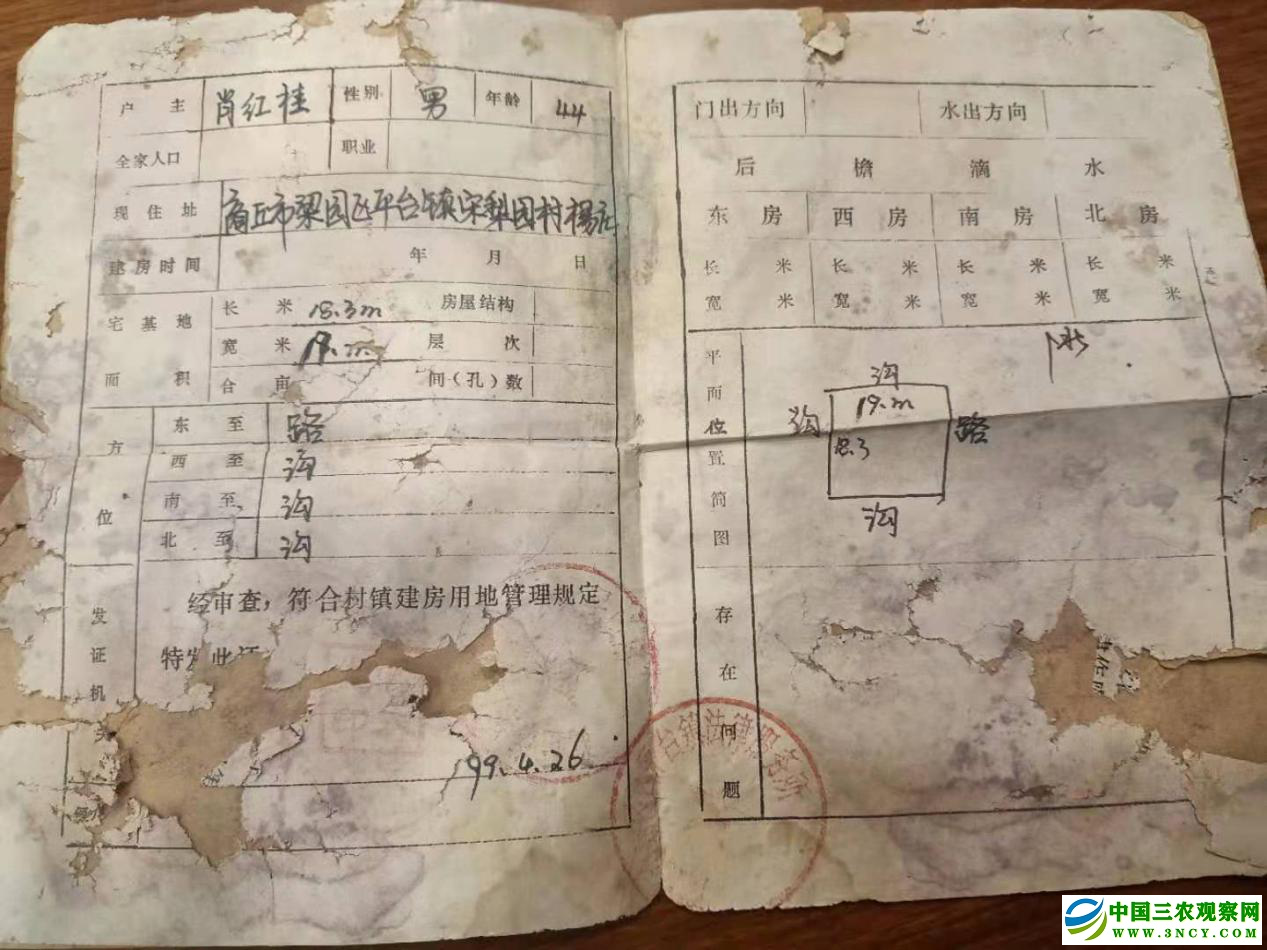 户主 肖红桂 性别 男 年龄 44
全家人口 职业
现住址 商丘市梁园区平台镇宋梨园村楊庄
建房时间 年 月 日
宅基地 长 米 18.3m 房屋结构
宽 米 19.m 层次
面积 合 亩 间(孔)数
方位 东至 路
西至 沟
南至 沟
北至 沟
发证机关
经审查，符合村镇建房用地管理规定
特发此证
99.4.26
门出方向 水出方向
后檐滴水
东房 西房 南房 北房
长 米 长 米 长 米 长 米
宽 米 宽 米 宽 米 宽 米
平面位置简图
沟
19.m
沟 18.3 路
沟
存在问题
台镇法律服务所
中国三农观察网
WWW.3NCY.COM